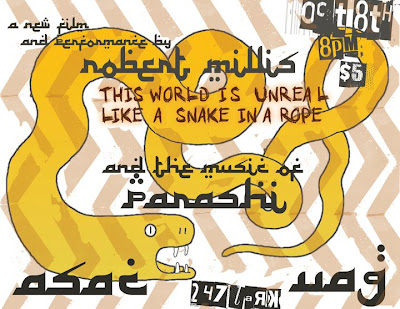 a new film
and performance by
robert millis
THIS WORLD IS UNREAL
LIKE A SNAKE IN A ROPE
and the music of
parashi
Oct18th
8PM
$5
asac
uag
247LaRK